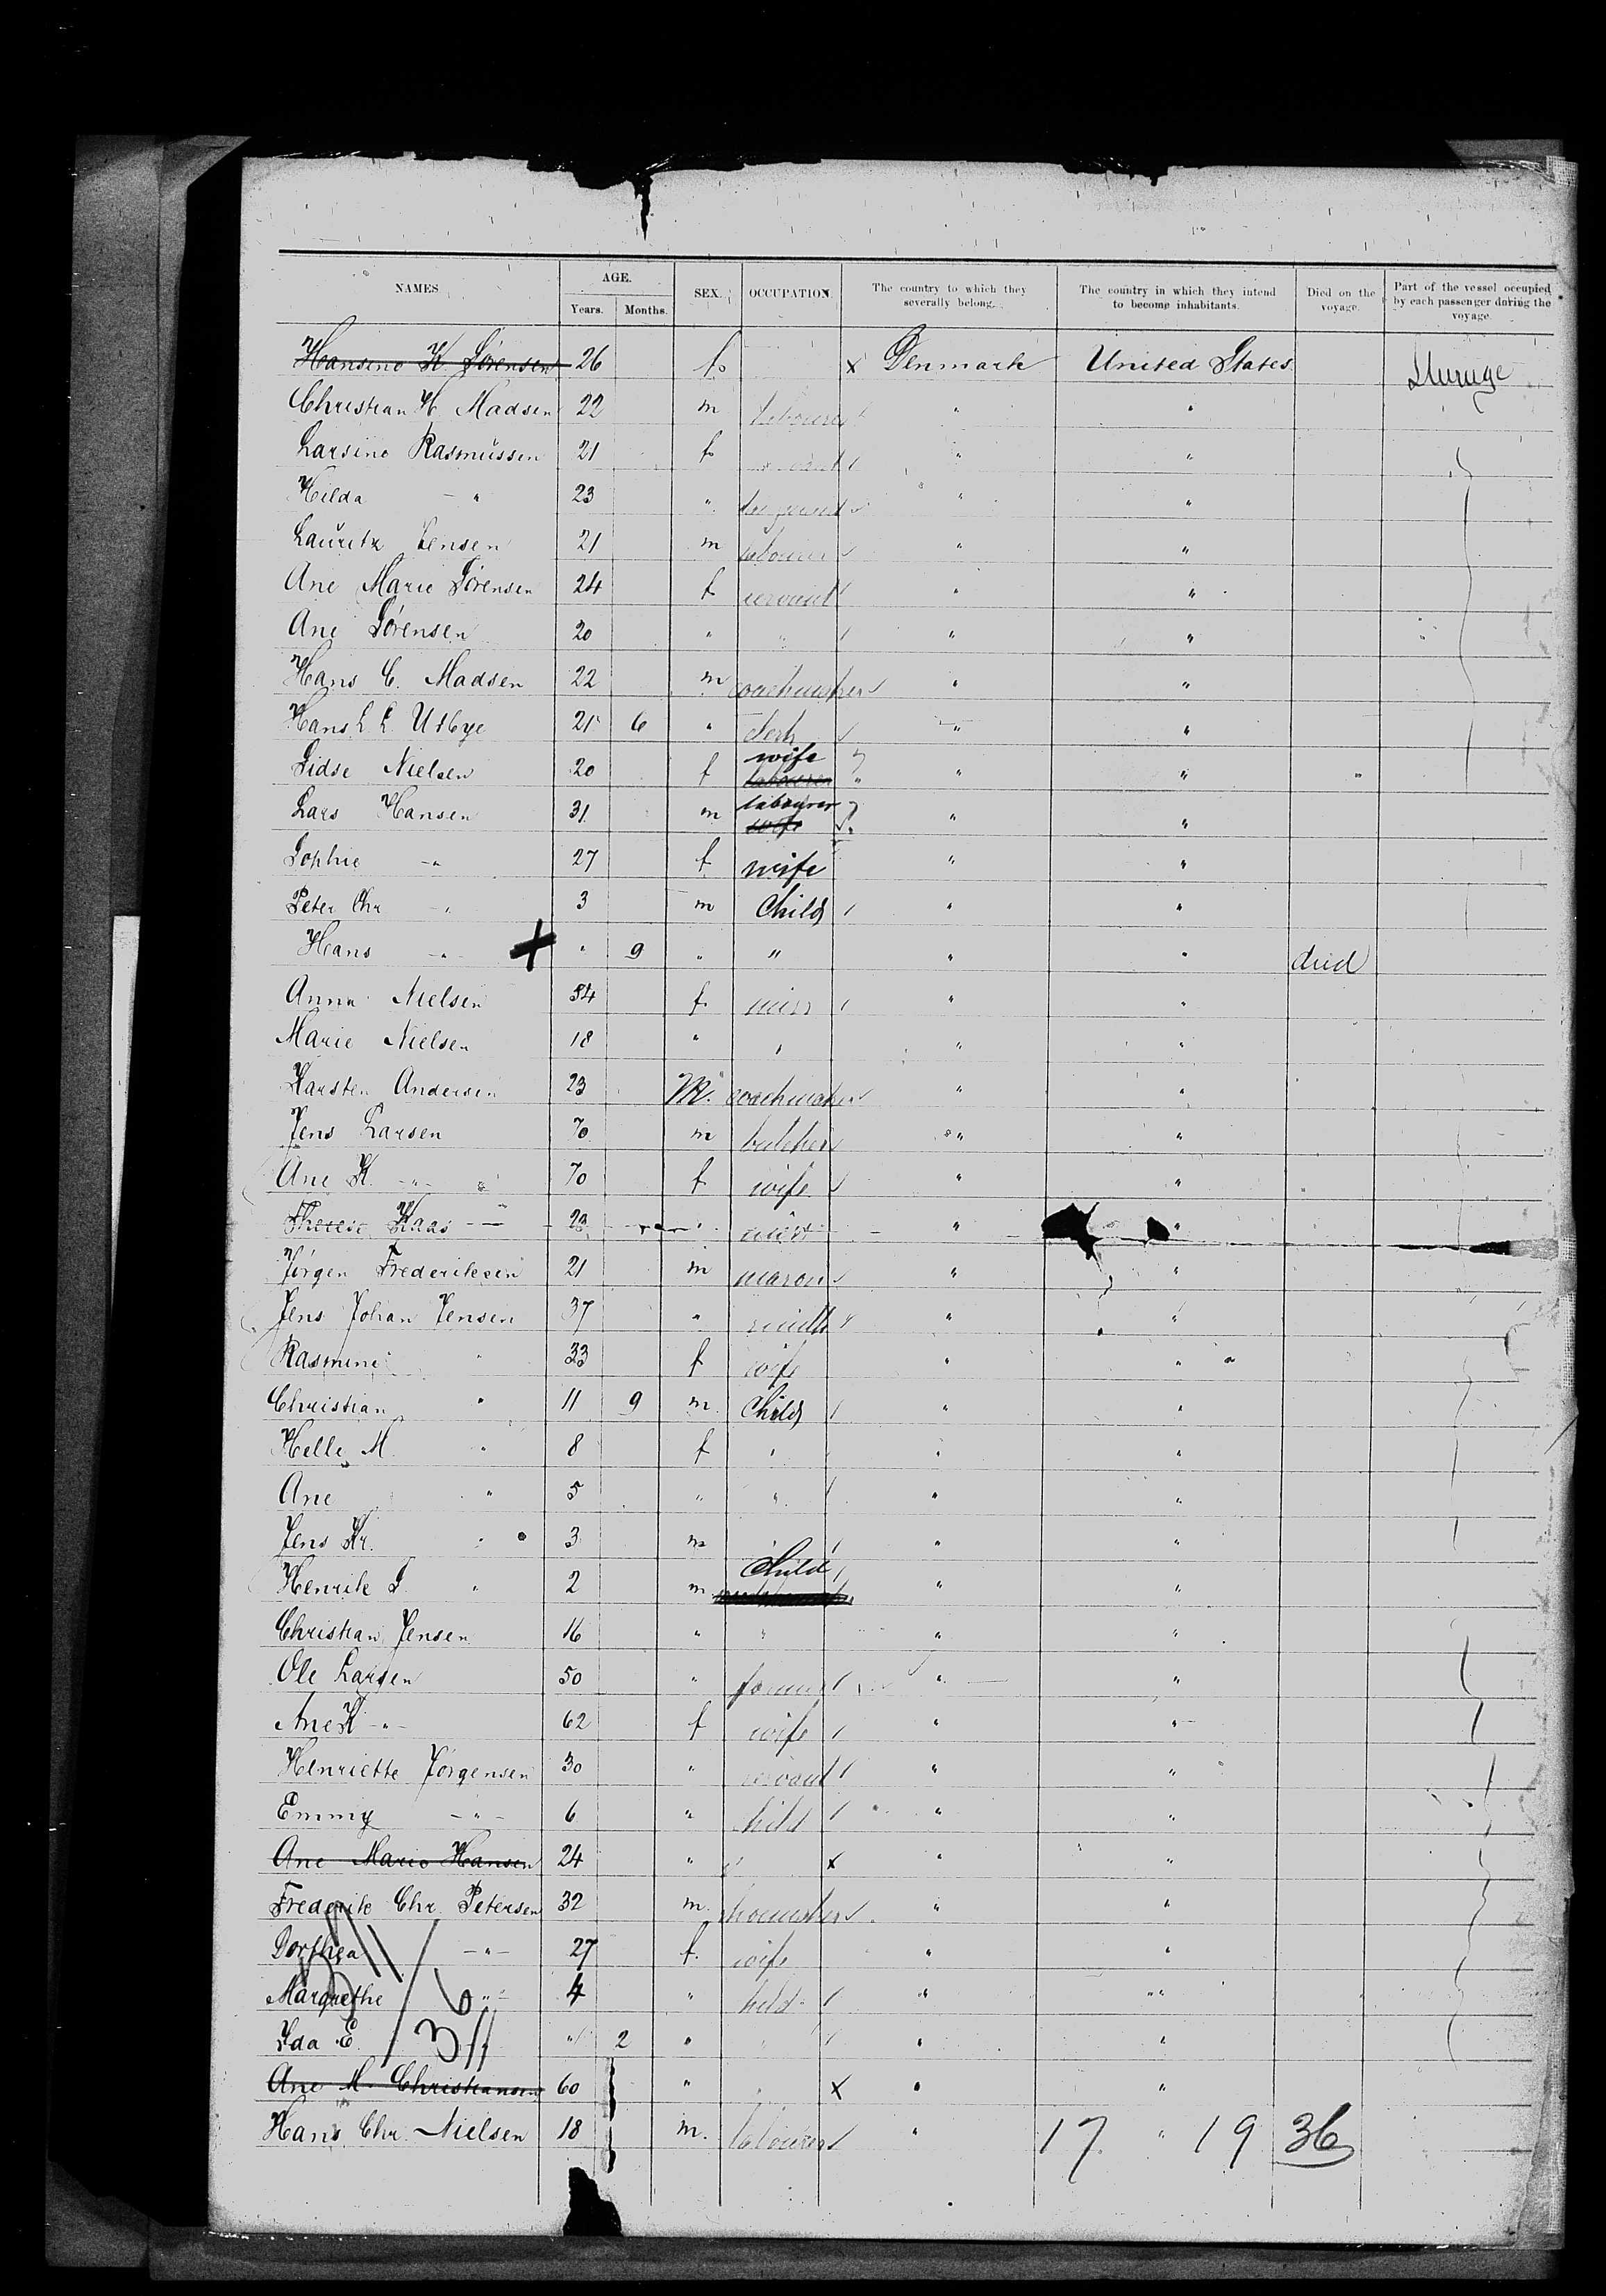 NAMES AGE. SEX. OCCUPATION. The country to which they severally belong. The country in which they intend to become inhabitants. Died on the voyage. Part of the vessel occupied by each passenger during the voyage.
Years. Months.
Hansine K Sörensen 26 f. x Denmark United States
Christian H Madsen 22 m labourer " "
Larsine Rasmussen 21 f servant " "
Hilda - " 23 " " "
Lauritz Jensen 21 m labourer " "
Ane Marie Sörensen 24 f servant " "
Ane Sörensen 20 " " " "
Hans C. Madsen 22 m coachmaker " "
Hans L. L. Utbye 21 6 " clerk " "
Sidse Nielsen 20 f wife labourer " " "
Lars Hansen 31 m labourer wife " "
Sophie - " 27 f wife " "
Peter Chr - " 3 m Child " "
Hans - " - X " 9 " " " " died
Anna Nielsen 34 f. miss " "
Marie Nielsen 18 " " " "
Karsten Andersen 23 M. coachmaker " "
Jens Larsen 70 m butcher " "
Ane K. - " - 70 f wife " "
Therese Kaas 23 " miss " "
Jörgen Frederiksen 21 m mason " "
Jens Johan Jensen 37 " smith " "
Rasmine " 33 f wife " "
Christian " 11 9 m. Child " "
Helle M. " 8 f " " "
Ane " 5 " " " "
Jens Kr. " 3 m " " "
Henrik " 2 m Child " "
Christian Jensen 16 " " " "
Ole Larsen 50 " farmer " "
Ane K - " - 62 f wife " "
Henriette Jörgensen 30 " servant " "
Emmy - " - 6 " child " "
Ane Marie Hansen 24 " " x " "
Frederik Chr. Petersen 32 m. shoemaker " "
Dorthea - " - 27 f. wife " "
Margrethe " - 4 " child " "
Ida E. " 2 " " " "
Ane M. Christiansen 60 " x " "
Hans Chr. Nielsen 18 m. labourer " 17 " 19 36